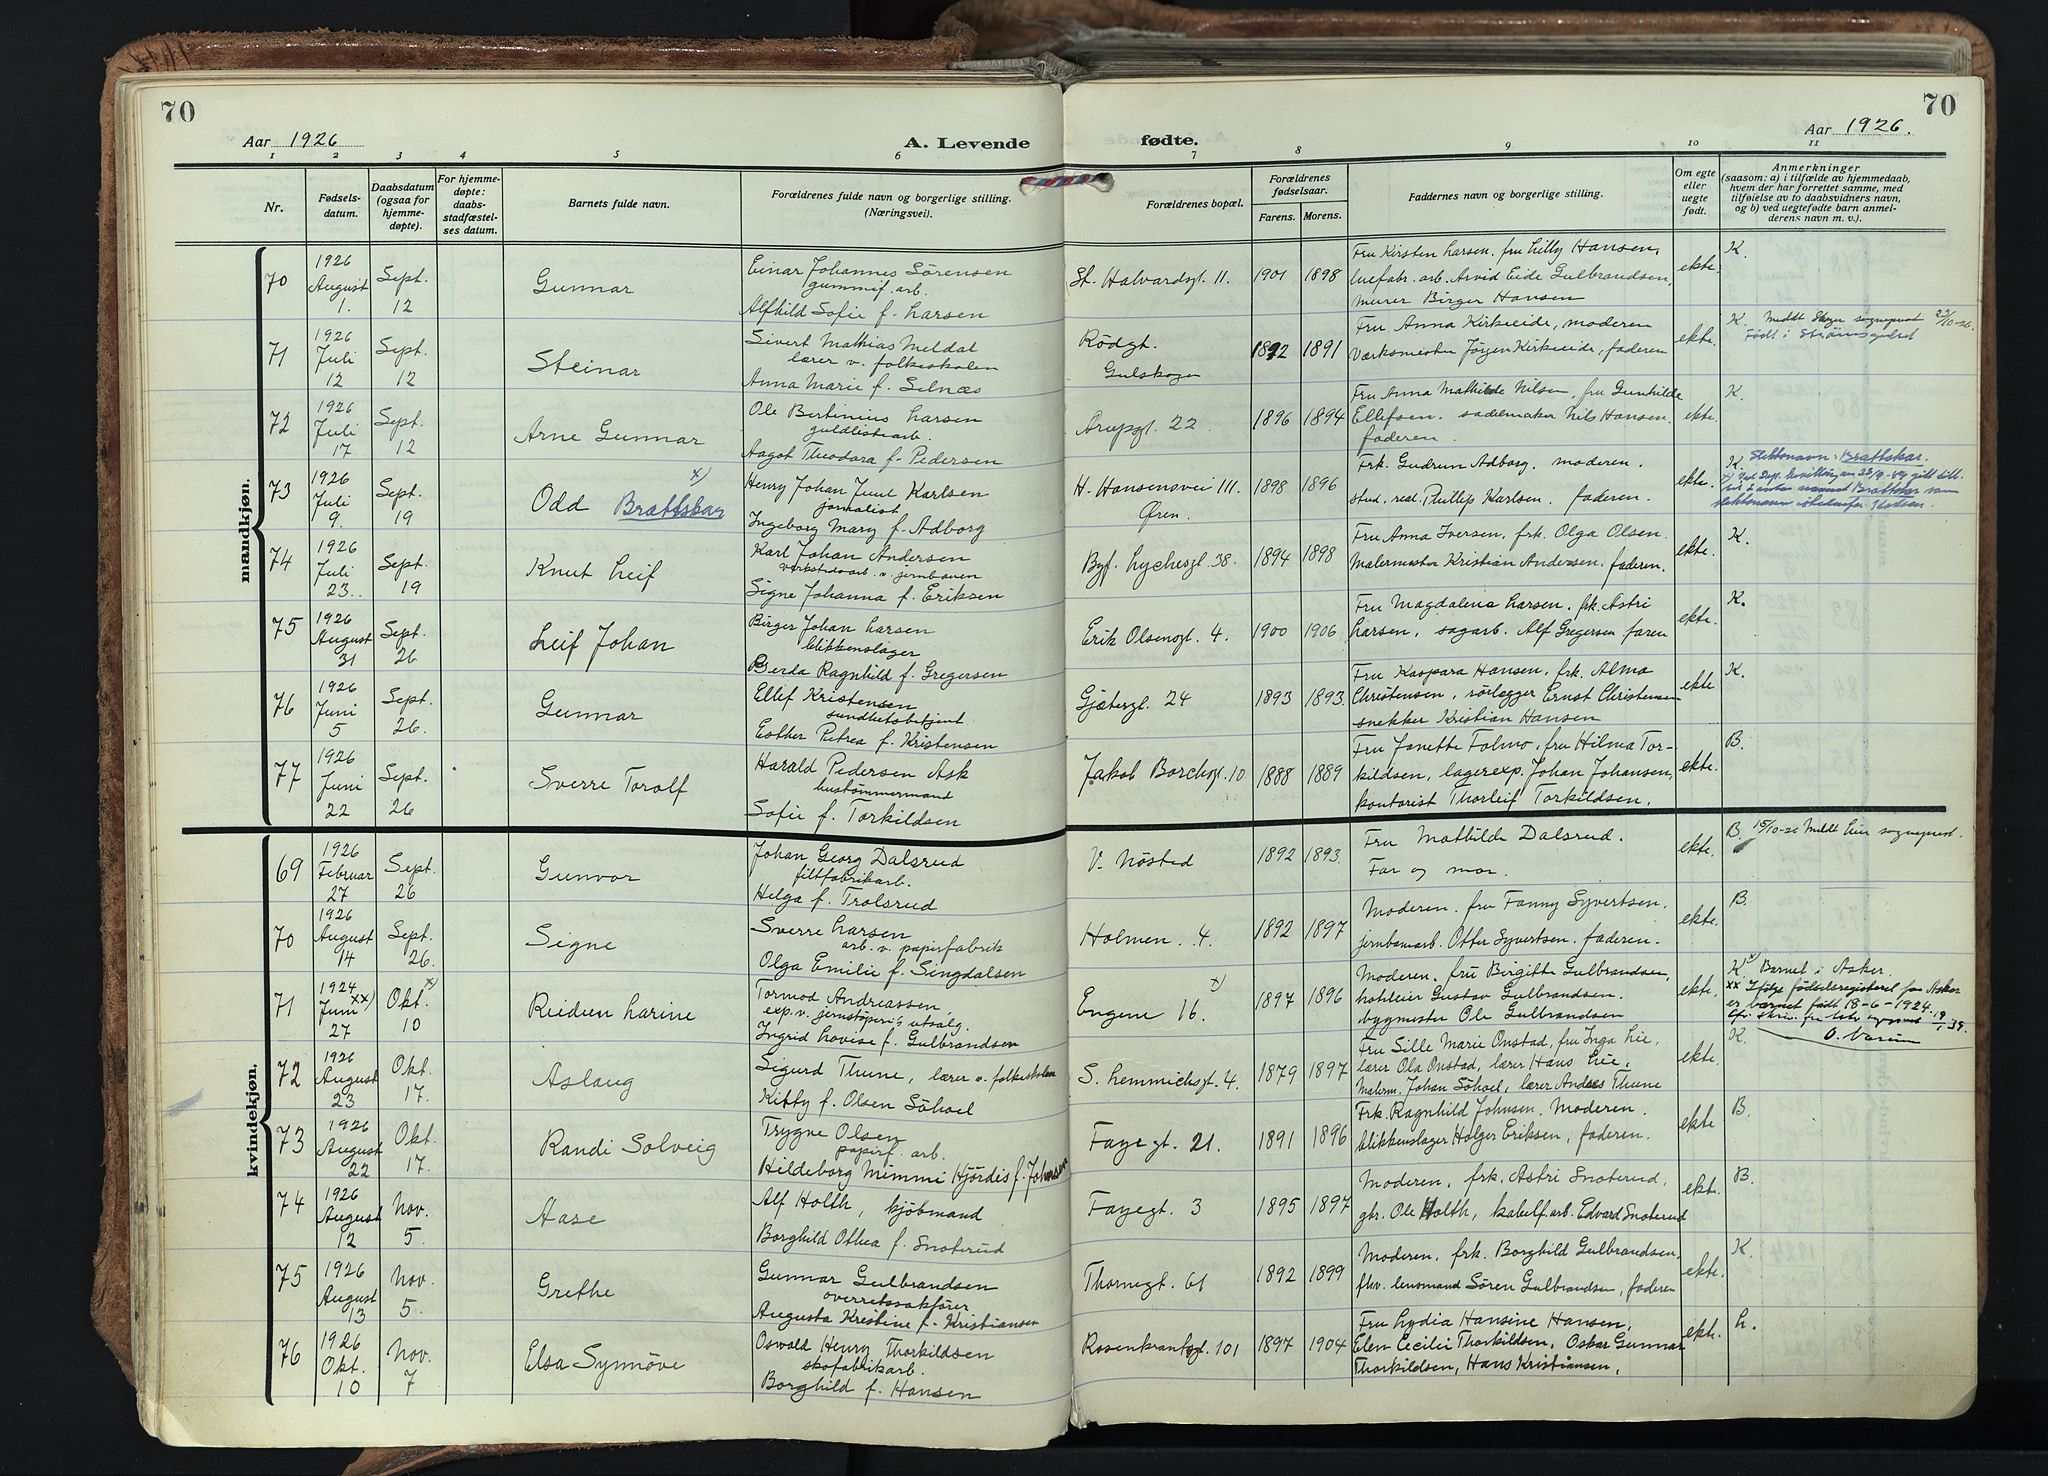 70
Aar 1926
A. Levende
fødte.
Aar 1926.
70
1 2 3 4 5 6 7 8 9 10 11
Nr.
Fødsels-
datum.
Daabsdatum
(ogsaa for
hjemme-
døpte).
For hjemme-
døpte:
daabs-
stadfæstel-
ses datum.
Barnets fulde navn.
Forældrenes fulde navn og borgerlige stilling.
(Næringsvei).
Forældrenes bopæl.
Forældrenes
fødselsaar.
Farens. Morens.
Faddernes navn og borgerlige stilling.
Om egte
eller
uegte
født.
Anmerkninger
(saasom: a) i tilfælde av hjemmedaab,
hvem der har forrettet samme, med
tilføielse av to daabsvidners navn,
og b) ved uegtefødte barn anmel-
derens navn m. v.).
mandkjøn.
70 1926 August 1. Sept. 12 Gunnar
Einar Johannes Sörensen
gummif. arb.
Alfhild Sofie f. Larsen
St. Halvardsgt. 11. 1901 1898
Fru Kirsten Larsen, fru Lilly Hansen,
luefabr. arb. Arvid Eide Gulbrandsen,
murer Birger Hansen
ekte. K.
71 1926 Juli 12 Sept. 12 Steinar
Sivert Mathias Meldal
lærer v. folkeskolen
Anna Marie f. Selnæs
Rödgt.
Gulskogen
1892 1891
Fru Anna Kirkeeide, moderen
Værksmester Jörgen Kirkeeide, faderen
ekte. K. Meldt Skoger sogneprest 22/10-26.
Født i Strømsgodset
72 1926 Juli 17 Sept. 12 Arne Gunnar
Ole Bertinius Larsen
guldlistearb.
Aagot Theodora f. Pedersen
Arupsgt. 22. 1896 1894
Fru Anna Mathilde Nilsen, fru Gunhilde
Ellefsen. sadelmaker Nils Hansen.
faderen.
ekte. K.
73 1926 Juli 9. Sept. 19 Odd Brattskar x)
Henry Johan Juul Karlsen
jornalist
Ingeborg Mary f. Adborg
H. Hansensvei 111.
Øren.
1898 1896
Frk. Gudrun Adborg. moderen.
stud. real. Phillip Karlsen. faderen.
ekte. K. Slektsnavn: Brattskar.
74 1926 Juli 23. Sept. 19 Knut Leif
Karl Johan Andersen
verkstedsarb. v. jernbanen
Signe Johanna f. Eriksen
Byf. Lychesgt. 38. 1894 1898
Fru Anna Iversen, frk. Olga Olsen.
Malermester Kristian Andersen, faderen.
ekte. K.
75 1926 August 31 Sept. 26 Leif Johan
Birger Johan Larsen
blikkenslager
Gerda Ragnhild f. Gregersen
Erik Olsensgt. 4. 1900 1906
Fru Magdalena Larsen, frk. Astri
Larsen, sagarb. Alf Gregersen faren
ekte. K.
76 1926 Juni 5 Sept. 26. Gunnar
Ellif Kristensen
sundhetsbetjent
Esther Petrea f. Kristensen
Gjetergt. 24 1893 1893.
Fru Kaspara Hansen, frk. Alma
Christensen, rörlegger Ernst Christensen
snekker Kristian Hansen
ekte K.
77 1926 Juni 22 Sept. 26 Sverre Torolf
Harald Pedersen Ask
hustömmermand
Sofie f. Torkildsen
Jakob Borchsgt. 10 1888 1889
Fru Janette Folmo, fru Hilma Tor-
kildsen, lagerexp. Johan Johansen,
kontorist Thorleif Torkildsen.
ekte. B.
kvindekjøn.
69 1926 Februar 27 Sept. 26 Gunvor
Johan Georg Dalsrud
filtfabrikarb.
Helga f. Trolsrud
V. Nösted 1892 1893.
Fru Mathilde Dalsrud.
Far og mor.
ekte. B. 15/10-26 Meldt Lier sogneprest.
70 1926 August 14 Sept. 26. Signe
Sverre Larsen
arb. v. papirfabrik
Olga Emilie f. Singdalsen
Holmen. 4. 1892 1897
Moderen. fru Fanny Syvertsen.
jernbanearb. Otter Syvertsen. faderen.
ekte. B.
71 1924 Juni xx) 27 Okt. x) 10 Reidun Larine
Tormod Andreassen,
exp. v. jernstøperi's utsalg.
Ingrid Lovise f. Gulbrandsen
Engene 16. x) 1897 1896
Moderen. fru Birgitte Gulbrandsen,
hotleier Gustav Gulbrandsen.
bygmester Ole Gulbrandsen
ekte. K. x) Barnet i Asker.
xx Ifølge fødselsregisteret for Asker
er barnet født 18-6-1924.
72 1926 August 23 Okt. 17. Aslaug
Sigurd Thune, lærer v. folkeskolen
Kitty f. Olsen Söhoel
S. Lemmichsgt. 4. 1879 1897
Fru Sille Marie Onstad, fru Inga Lie,
lærer Ola Onstad, lærer Hans Lie,
Malerm. Johan Söhoel, lærer Anders Thune
ekte. K.
73 1926 August 22 Okt. 17. Randi Solveig
Trygve Olsen
papirf. arb.
Hildeborg Mimmi Hjördis f. Johnsen
Fayegt. 21. 1891 1896
Frk. Ragnhild Johnsen. Moderen.
blikkenslager Holger Eriksen, faderen.
ekte B.
74 1926 August 12 Nov. 5. Aase
Alf Holth, kjöbmand
Borghild Othea f. Snoterud
Fayegt. 3 1895 1897
Moderen, frk. Astri Snoterud,
gbr. Ole Holth, kabelf arb. Edvard Snoterud
ekte. B.
75 1926 August 13 Nov. 5. Grethe
Gunnar Gulbrandsen
overretssakfører
Augusta Kristine f. Kristiansen
Thornegt. 61 1892 1899
Moderen, frk. Borghild Gulbrandsen,
fhv. lensmand Sören Gulbrandsen, faderen
ekte. K.
76 1926 Okt. 10 Nov. 7 Elsa Synnöve
Oswald Henry Thorkildsen
skofabrikarb.
Borghild f. Hansen
Rosenkrantzgt. 101 1897 1904
Fru Lydia Hansine Hansen,
Elen Cecilie Thorkildsen, Oskar Gunnar
Thorkildsen, Hans Kristiansen.
ekte. L.